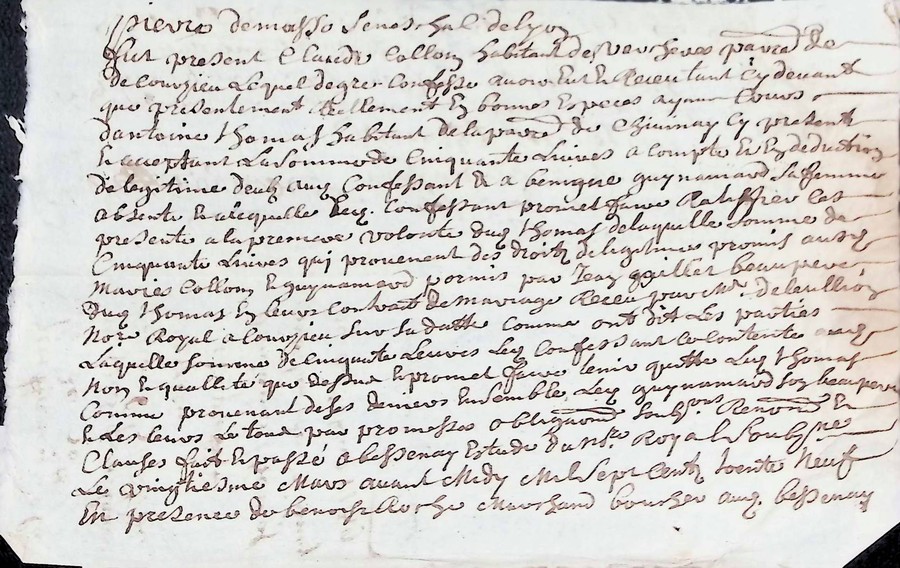 pierre demasso Seneschal de lyon
fut present Claude Collon habitant de Vercheres parr de
de Courzieu Lequel degre Confesse avoir Eut et Receu tant Cy devant
que presentement Reellement En bonnes Especes ayant Cours
Dantoine thomas habitant de la parr de Chivinay Cy present
Et acceptant La Somme de Cinquante Livres a Compte et En deduction
de legitime deub aud Confessant Et a benigne guynamard Sa femme
absente Et a laquelle led. Confessant promet faire Ratiffier Ces
presente a la premiere volonte dud thomas de laquelle Somme de
Cinquante Livres qui provienent des droitz de legitimes promis ausd
Maries Collon Et guynamard promis par Jean beaupere,
dud thomas En leurs Contrat de Mariage Receu par Me. deleullion
Nore Royal a Courzieu Sur Sa datte Comme ont dit Les parties
Laquelle Somme de Cinquante Livres Led Confessant Ce Contente aud
Non Et quallite que dessus Et promet faire tenir quitte Led thomas
Comme provenant de Ses deniers Ensemble Led guynamard Son beaupere
Et Les Leurs Le tout par promesses obligaons Renonons Et
Clauses fait Et passé a bessenay Estude du Nore Royal Soubsne
Le vingtiesme Mars avant Midy Mil Sept Centz trente Neuf
En presence de benoist Roche Marchand boucher aud. bessenay